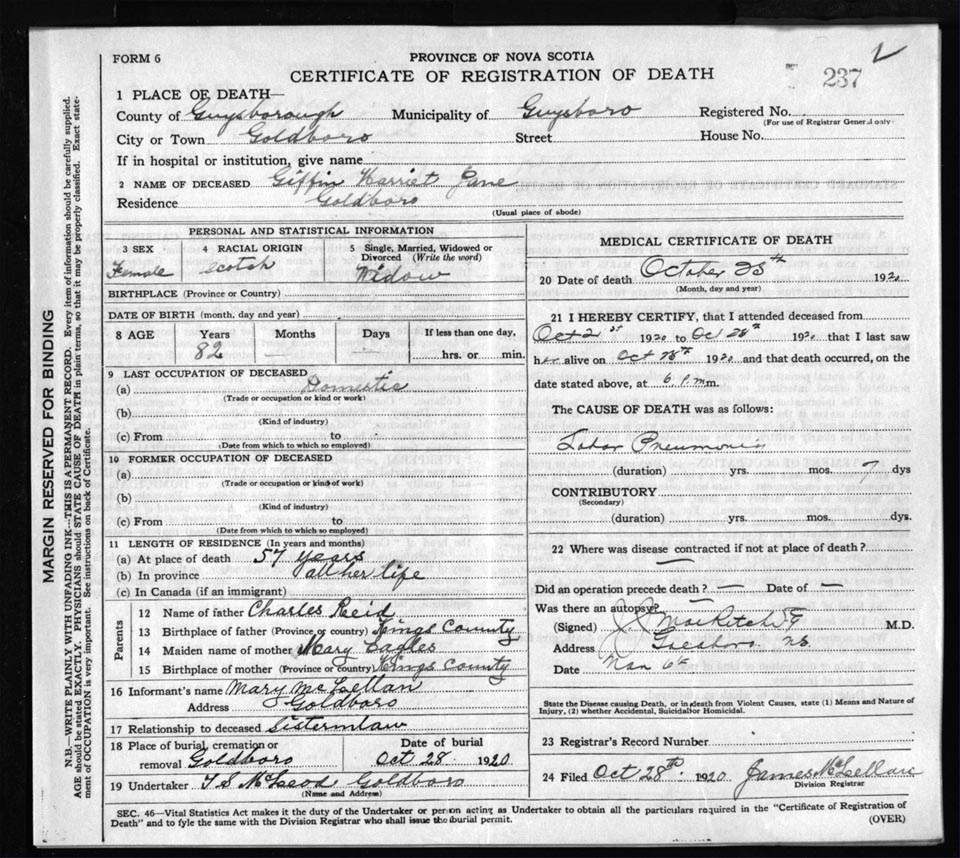 FORM 6
PROVINCE OF NOVA SCOTIA
CERTIFICATE OF REGISTRATION OF DEATH
237
1 PLACE OF DEATH—
County of Guysborough Municipality of Guysboro Registered No.
(For use of Registrar General only)
City or Town Goldboro Street House No.
If in hospital or institution, give name
2 NAME OF DECEASED Giffin Harriet Jane
Residence Goldboro
(Usual place of abode)
PERSONAL AND STATISTICAL INFORMATION
3 SEX 4 RACIAL ORIGIN 5 Single, Married, Widowed or Divorced (Write the word)
Female Scotch Widow
BIRTHPLACE (Province or Country)
DATE OF BIRTH (month, day and year)
8 AGE Years Months Days If less than one day,
82 — — hrs. or min.
9 LAST OCCUPATION OF DECEASED
(a) Domestic
(Trade or occupation or kind or work)
(b)
(Kind of industry)
(c) From to
(Date from which to which so employed)
10 FORMER OCCUPATION OF DECEASED
(a)
(Trade or occupation or kind of work)
(b)
(Kind of industry)
(c) From to
(Date from which to which so employed)
11 LENGTH OF RESIDENCE (In years and months)
(a) At place of death 57 years
(b) In province all her life
(c) In Canada (if an immigrant)
Parents
12 Name of father Charles Reid
13 Birthplace of father (Province or country) Kings County
14 Maiden name of mother Mary Eagles
15 Birthplace of mother (Province or country) Kings County
16 Informant's name Mary McLellan
Address Goldboro
17 Relationship to deceased Sisterinlaw
18 Place of burial, cremation or removal Goldboro Date of burial Oct 28 1920
19 Undertaker T S McLeod Goldboro
(Name and Address)
MEDICAL CERTIFICATE OF DEATH
20 Date of death October 1920
(Month, day and year)
21 I HEREBY CERTIFY, that I attended deceased from
Oct 21st 1920 to Oc 28th 1920 that I last saw
her alive on Oct 1920 and that death occurred, on the
date stated above, at 6 P.m m.
The CAUSE OF DEATH was as follows:
Lobar Pneumonia
(duration) yrs. mos. 7 dys
CONTRIBUTORY
(Secondary)
(duration) yrs. mos. dys.
22 Where was disease contracted if not at place of death?
—
Did an operation precede death? — Date of —
Was there an autopsy?
(Signed) M.D.
Address N.S.
Date Nov 6th
State the Disease causing Death, or in death from Violent Causes, state (1) Means and Nature of
Injury, (2) whether Accidental, Suicidal or Homicidal.
23 Registrar's Record Number
24 Filed Oct 28th 1920 James McLellan
Division Registrar
SEC. 46—Vital Statistics Act makes it the duty of the Undertaker or person acting as Undertaker to obtain all the particulars required in the "Certificate of Registration of
Death" and to fyle the same with the Division Registrar who shall issue the burial permit. (OVER)
MARGIN RESERVED FOR BINDING
N.B—WRITE PLAINLY WITH UNFADING INK—THIS IS A PERMANENT RECORD. Every item of information should be carefully supplied.
AGE should be stated EXACTLY. PHYSICIANS should STATE CAUSE OF DEATH in plain terms, so that it may be properly classified. Exact state-
ment of OCCUPATION is very important. See instructions on back of Certificate.